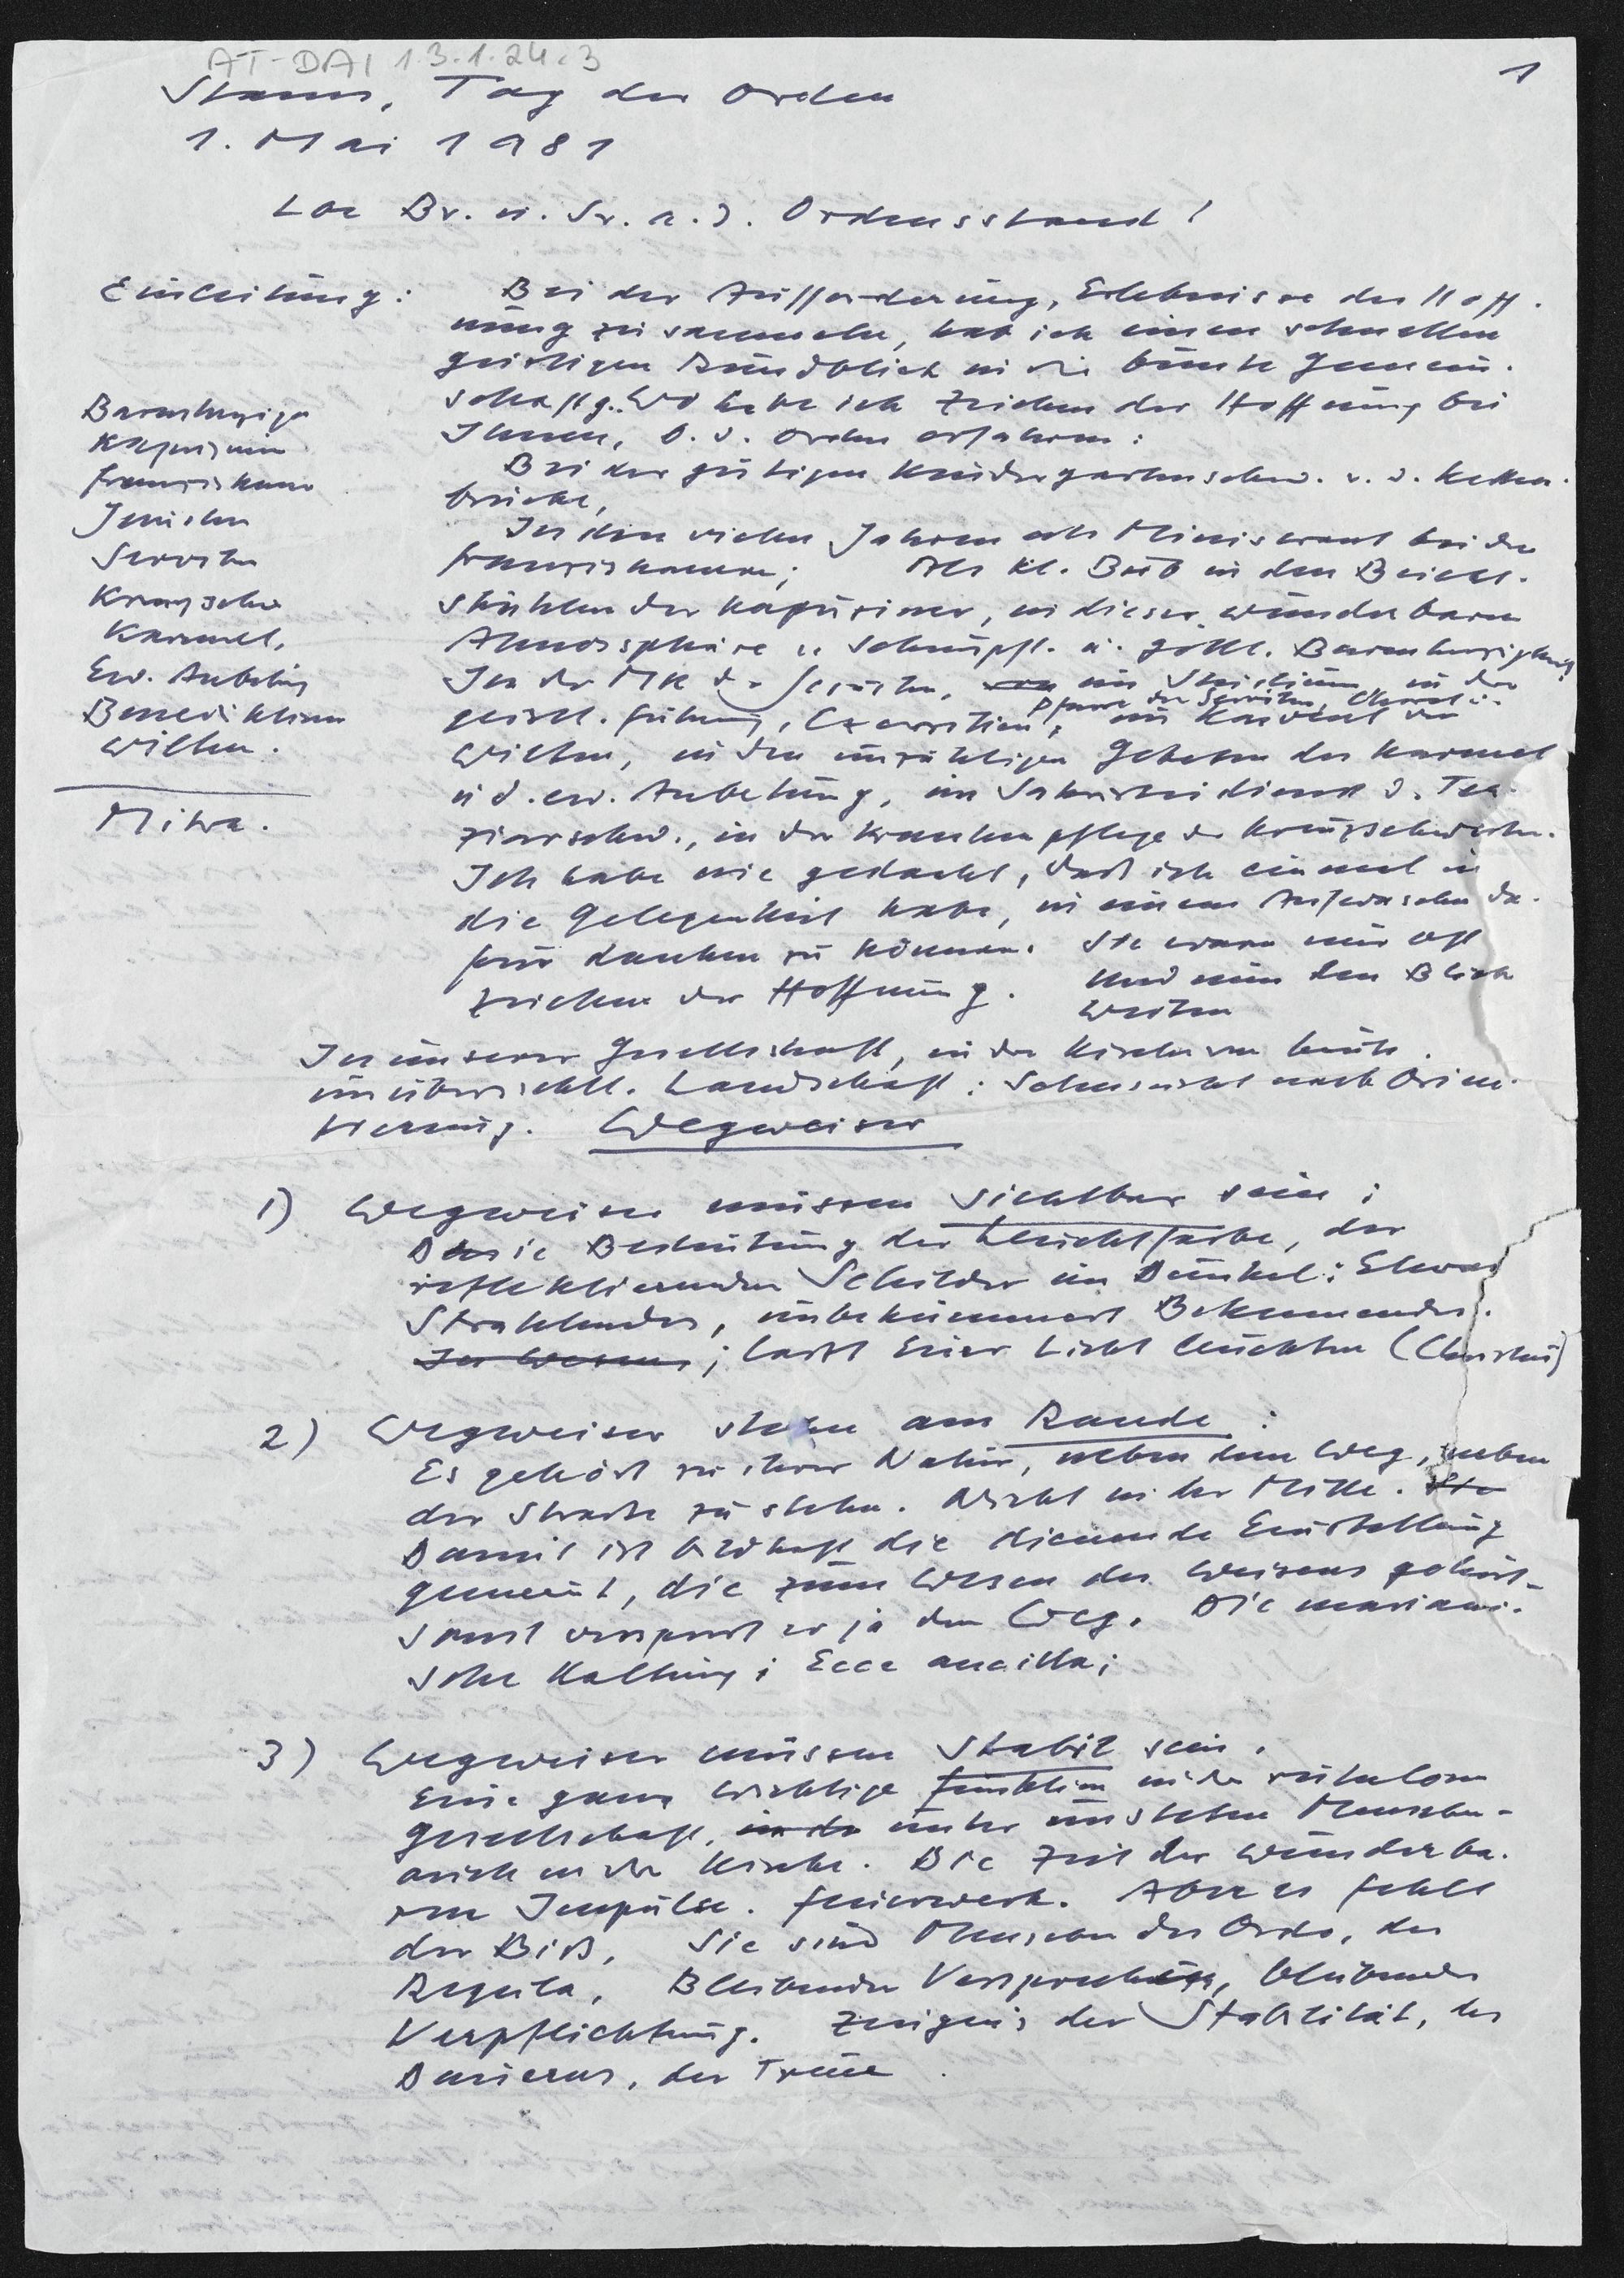 AT-DAI 1.3.1.24.3
1
Stams, Tag der Orden
1. Mai 1981
Lbe Br. u. Sr. a. d. Ordensstand!
Einleitung:
Bei der Aufforderung, Erlebnisse der Hoff-
nung zu sammeln, hab ich einen schnellen
geistigen Rundblick in die bunte Gemein-
schaft g. Wo habe ich Zeichen der Hoffnung bei
Ihnen, b. d. Orden erfahren:
Bei der gütigen Kindergartenschw. v. d. Ketten-
brücke,
In den vielen Jahren als Ministrant bei den
Franziskanern; Als kl. Bub in den Beicht-
stühlen der Kapuziner, in dieser wunderbaren
Atmosphäre v. Schnupft. u. göttl. Barmherzigkeit,
In der MK der Jesuiten, im Studium, in der
Pfarre der Serviten,
geistl. Führung, Exerzitien, im Konvent von
Wilten, in den unzähligen Gebeten des Karmel
u d. ew. Anbetung, im Sakristeidienst d. Ter-
ziarschw., in der Krankenpflege der Kreuzschwestern.
Ich habe nie gedacht, daß ich einmal
die Gelegenheit habe, in einem Aufwaschen da-
für danken zu können. Sie waren mir oft
Zeichen der Hoffnung. Und nun den Blick
weiten
Barmherzige
Kapuziner
Franziskaner
Jesuiten
Serviten
Kreuzschw
Karmel,
Ew. Anbetung
Benediktiner
Wilten.
Mitra.
In unserer Gesellschaft, in der Kirche von heute.
unübersichtl. Landschaft: Sehnsucht nach Orien-
tierung. Wegweiser
1) Wegweiser müssen sichtbar sein:
Die Bedeutung der Leuchtfarbe, der
reflektierenden Schilder im Dunkel: Etwas
Strahlendes, unbekümmert Bekennendes.
; laßt Euer Licht leuchten (Christus)
2) Wegweiser stehen am Rande:
Es gehört zu ihrer Natur, neben dem Weg, neben
der Straße zu stehen. Nicht in der Mitte. Sie
Damit ist bildhaft die dienende Einstellung
gemeint, die zum Wesen des Weisens gehört-
sonst versperrt er ja den Weg. Die mariani-
sche Haltung: Ecce ancilla;
3) Wegweiser müssen stabil sein.
Eine ganz wichtige Funktion in der ruhelosen
Gesellschaft, in der unter unsteten Menschen-
auch in der Kirche. Die Zeit der wunderba-
ren Impulse. Feuerwerk. Aber es fehlt
der Biß. Sie sind Menschen des Ordo, der
Regula, Bleibender Versprechen, bleibender
Verpflichtung. Zeugnis der Stabilität, des
Dauerns, der Treue.